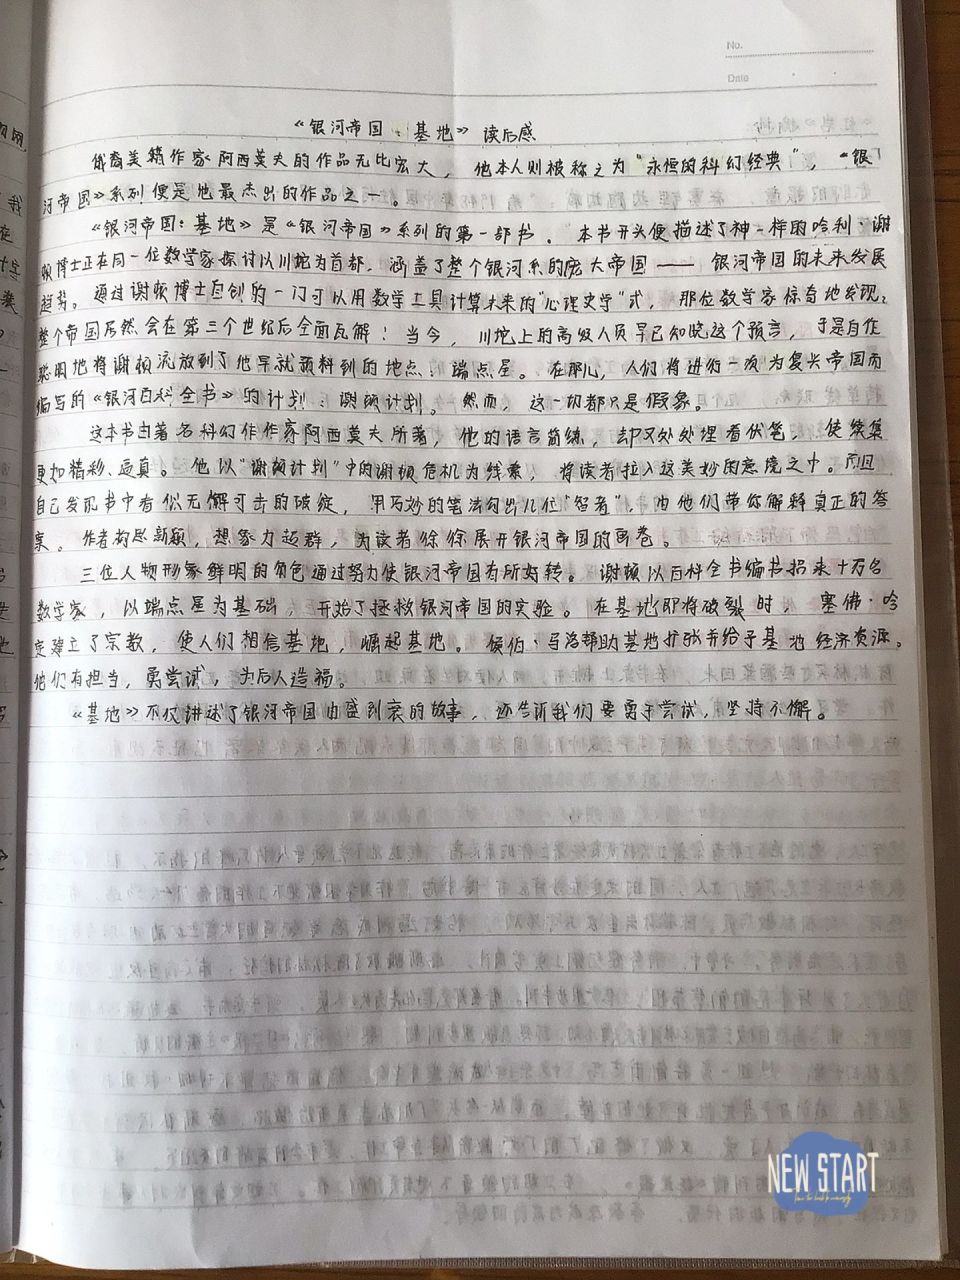 No.
Date
《银河帝国：基地》读后感
俄裔美籍作家阿西莫夫的作品无比宏大，他本人则被称之为“永恒的科幻经典”，“银
河帝国》系列便是他最杰出的作品之一。
《银河帝国：基地》是《银河帝国》系列的第一部书．本书开头便描述了神一样的哈利·谢
顿博士正在同一位数学家探讨以川陀为首都，涵盖了整个银河系的庞大帝国——银河帝国的未来发展
趋势。通过谢顿博士自创的一门可以用数学工具计算未来的“心理史学”式，那位数学家惊奇地发现：
整个帝国居然会在第三个世纪后全面瓦解！当今，川陀上的高级人员早已知晓这个预言，于是自作
聪明地将谢顿流放到了他早就预料到的地点：端点星。在那儿，人们将进行一项为复兴帝国而
编写的《银河百科全书》的计划：谢顿计划。然而，这一切都只是假象。
这本书由著名科幻作作家阿西莫夫所著，他的语言简练，却又处处埋着伏笔，使续集
更加精彩、逼真。他以“谢顿计划”中的谢顿危机为线索，将读者拉入这美妙的意境之中。而且
自己发现书中看似无懈可击的破绽，用巧妙的笔法勾出几位“智者”，由他们带你解释真正的答
案。作者构思新颖，想象力超群，为读者徐徐展开银河帝国的画卷。
三位人物形象鲜明的角色通过努力使银河帝国有所好转。谢顿以百科全书编书招来十万名
数学家，以端点星为基础，开始了拯救银河帝国的实验。在基地即将破裂时，塞佛·哈
定建立了宗教，使人们相信基地，崛起基地。侯伯·马洛帮助基地扩张并给予基地经济资源。
他们有担当，勇尝试，为后人造福。
《基地》不仅讲述了银河帝国由盛到衰的故事，还告诉我们要勇于尝试，坚持不懈。
NEW START